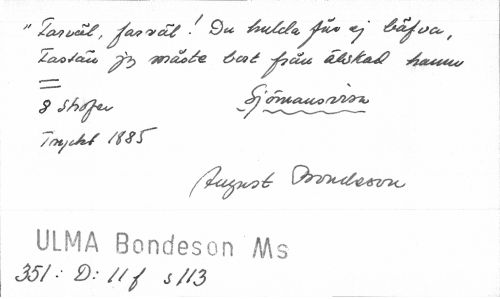 "Farväl, farväl! Du hulda får ej bäfva,
Fastän jg måste bort från älskad hamn
8 strofer Sjömansvisa
Tryckt 1885
August Bondeson
ULMA Bondeson Ms
351: D: 11 f s 113